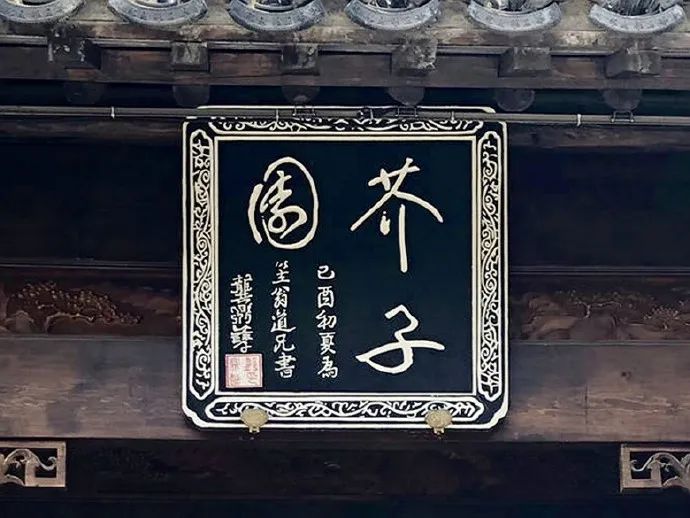 芥子
園
己酉初夏為
笠翁道兄書
龔鼎孳